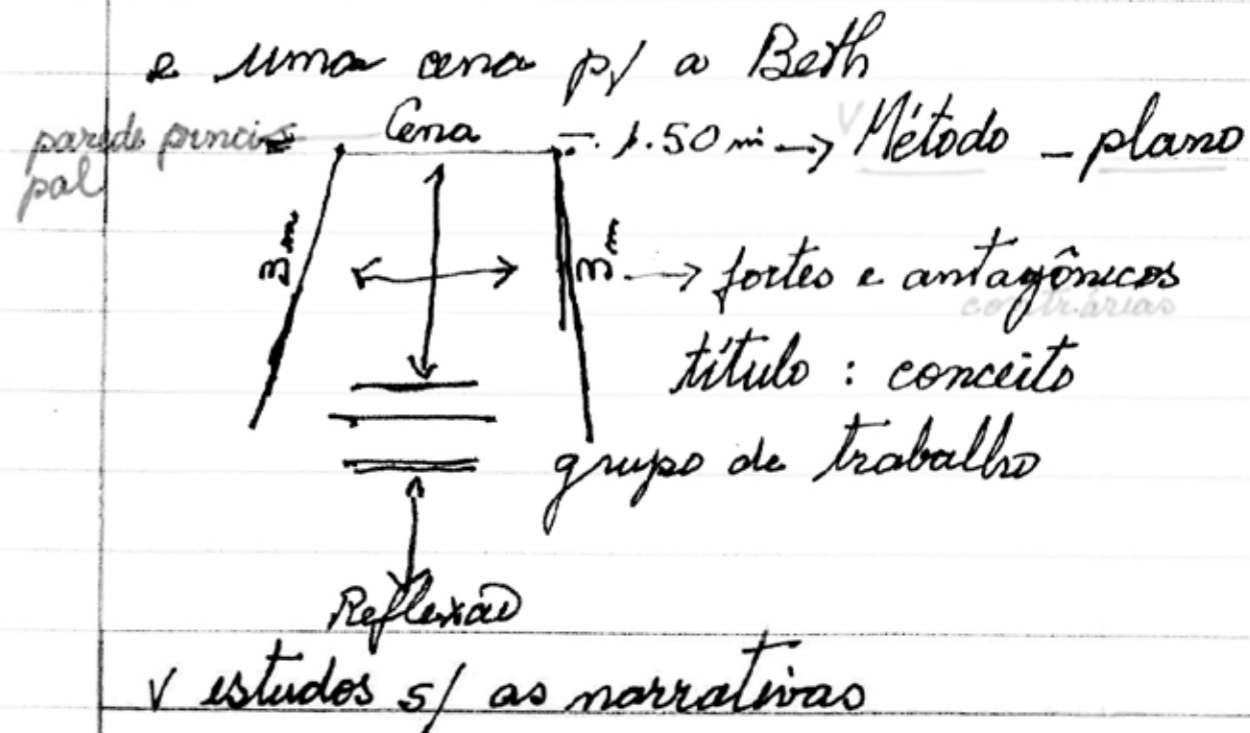 e uma cena p/ a Beth
parede princi
pal
Cena
1.50 m → Método - plano
3m
3m → fortes e antagônicos
contrárias
título : conceito
grupo de trabalho
Reflexão
v estudos s/ as narrativas